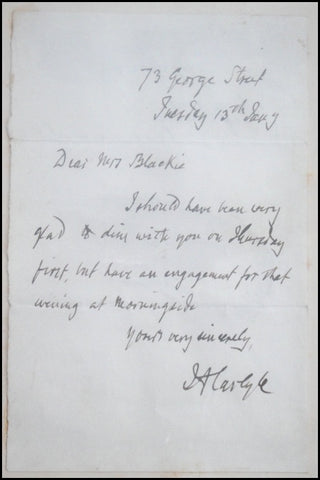 73 George Street
Tuesday 13th Jany
Dear Mrs Blackie
I should have been very
glad to dine with you on Thursday
first, but have an engagement for that
evening at Morningside
Yours very sincerely,
JACarlyle